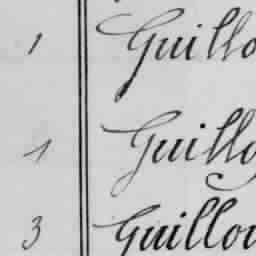 1 Guillo
1 Guillo
3 Guillou